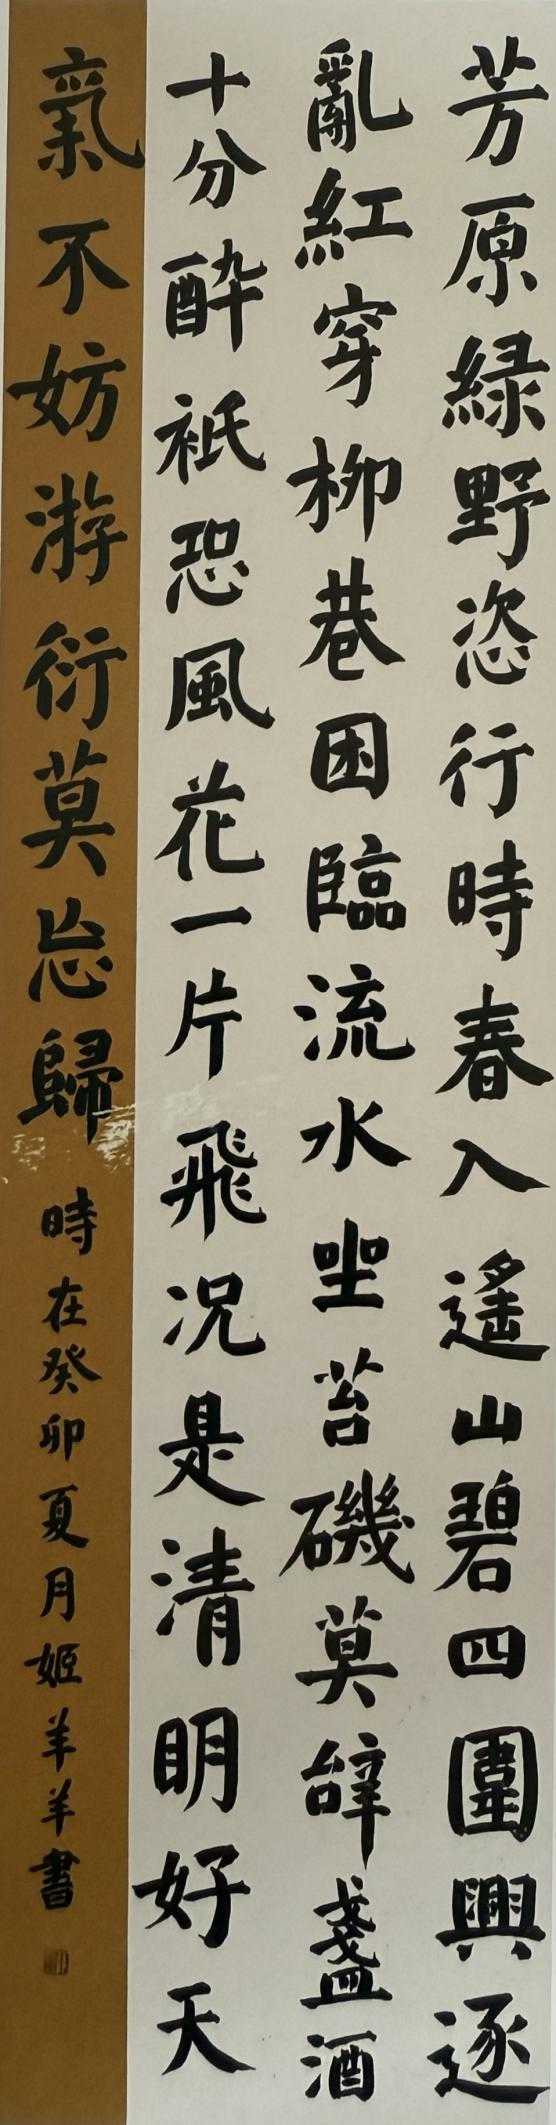 芳原緑野恣行時春入遙山碧四圍興逐
亂紅穿柳巷困臨流水坐苔磯莫辝盞酒
十分醉祇恐風花一片飛况是清明好天
氣不妨游衍莫忘歸
時在癸卯夏月姬羊羊書